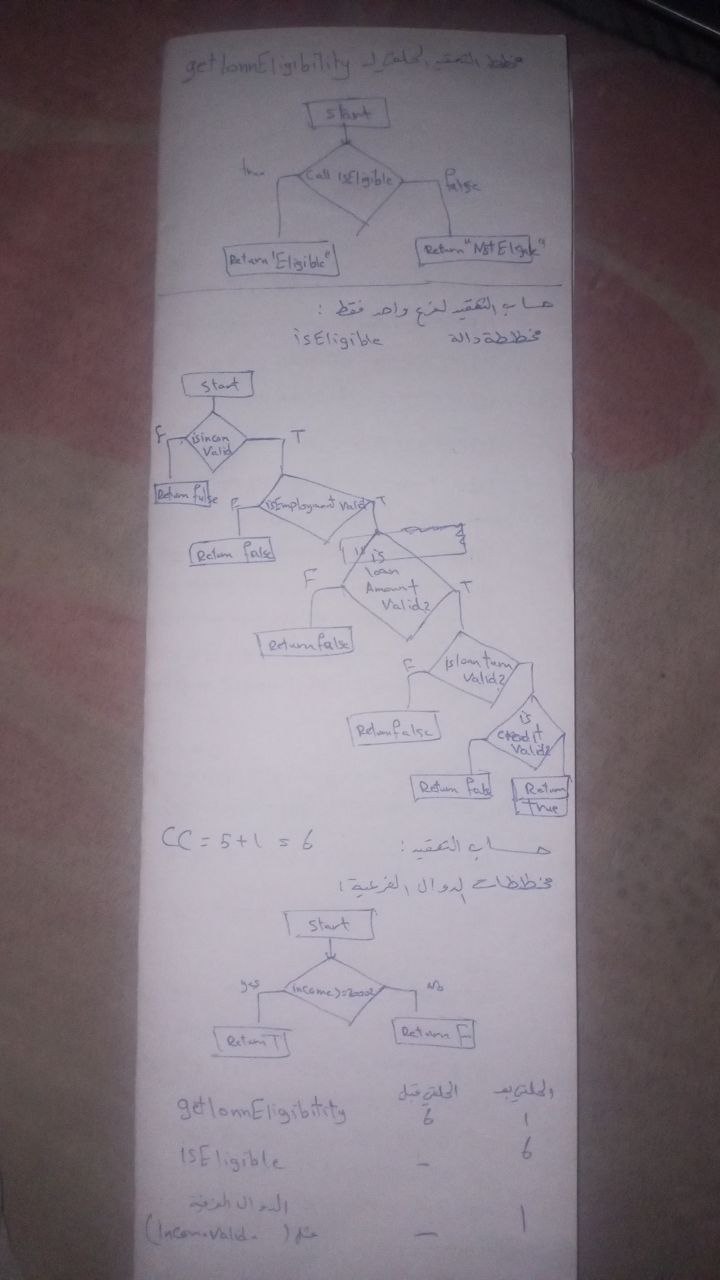 مخطط التعقيد الحلقي لـ getloanEligibility
Start
Call isEligible
true
false
Return "Eligible"
Return "Not Eligible"
حساب التعقيد لفرع واحد فقط :
مخططة دالة isEligible
Start
isincom Valid
F
T
Return false
isEmployment Valid
F
T
Return false
is loan Amount Valid?
F
T
Return false
is loan turm Valid?
F
Return false
is credit Valid?
Return false
Return True
حساب التعقيد : CC = 5+1 = 6
مخططات الدوال الفرعية :
Start
yes
No
Return T
Return F
الحلقي قبل
الحلقي بعد
getloanEligibility 6 1
isEligible – 6
الدوال الفرعية
مثل ( ) – 1